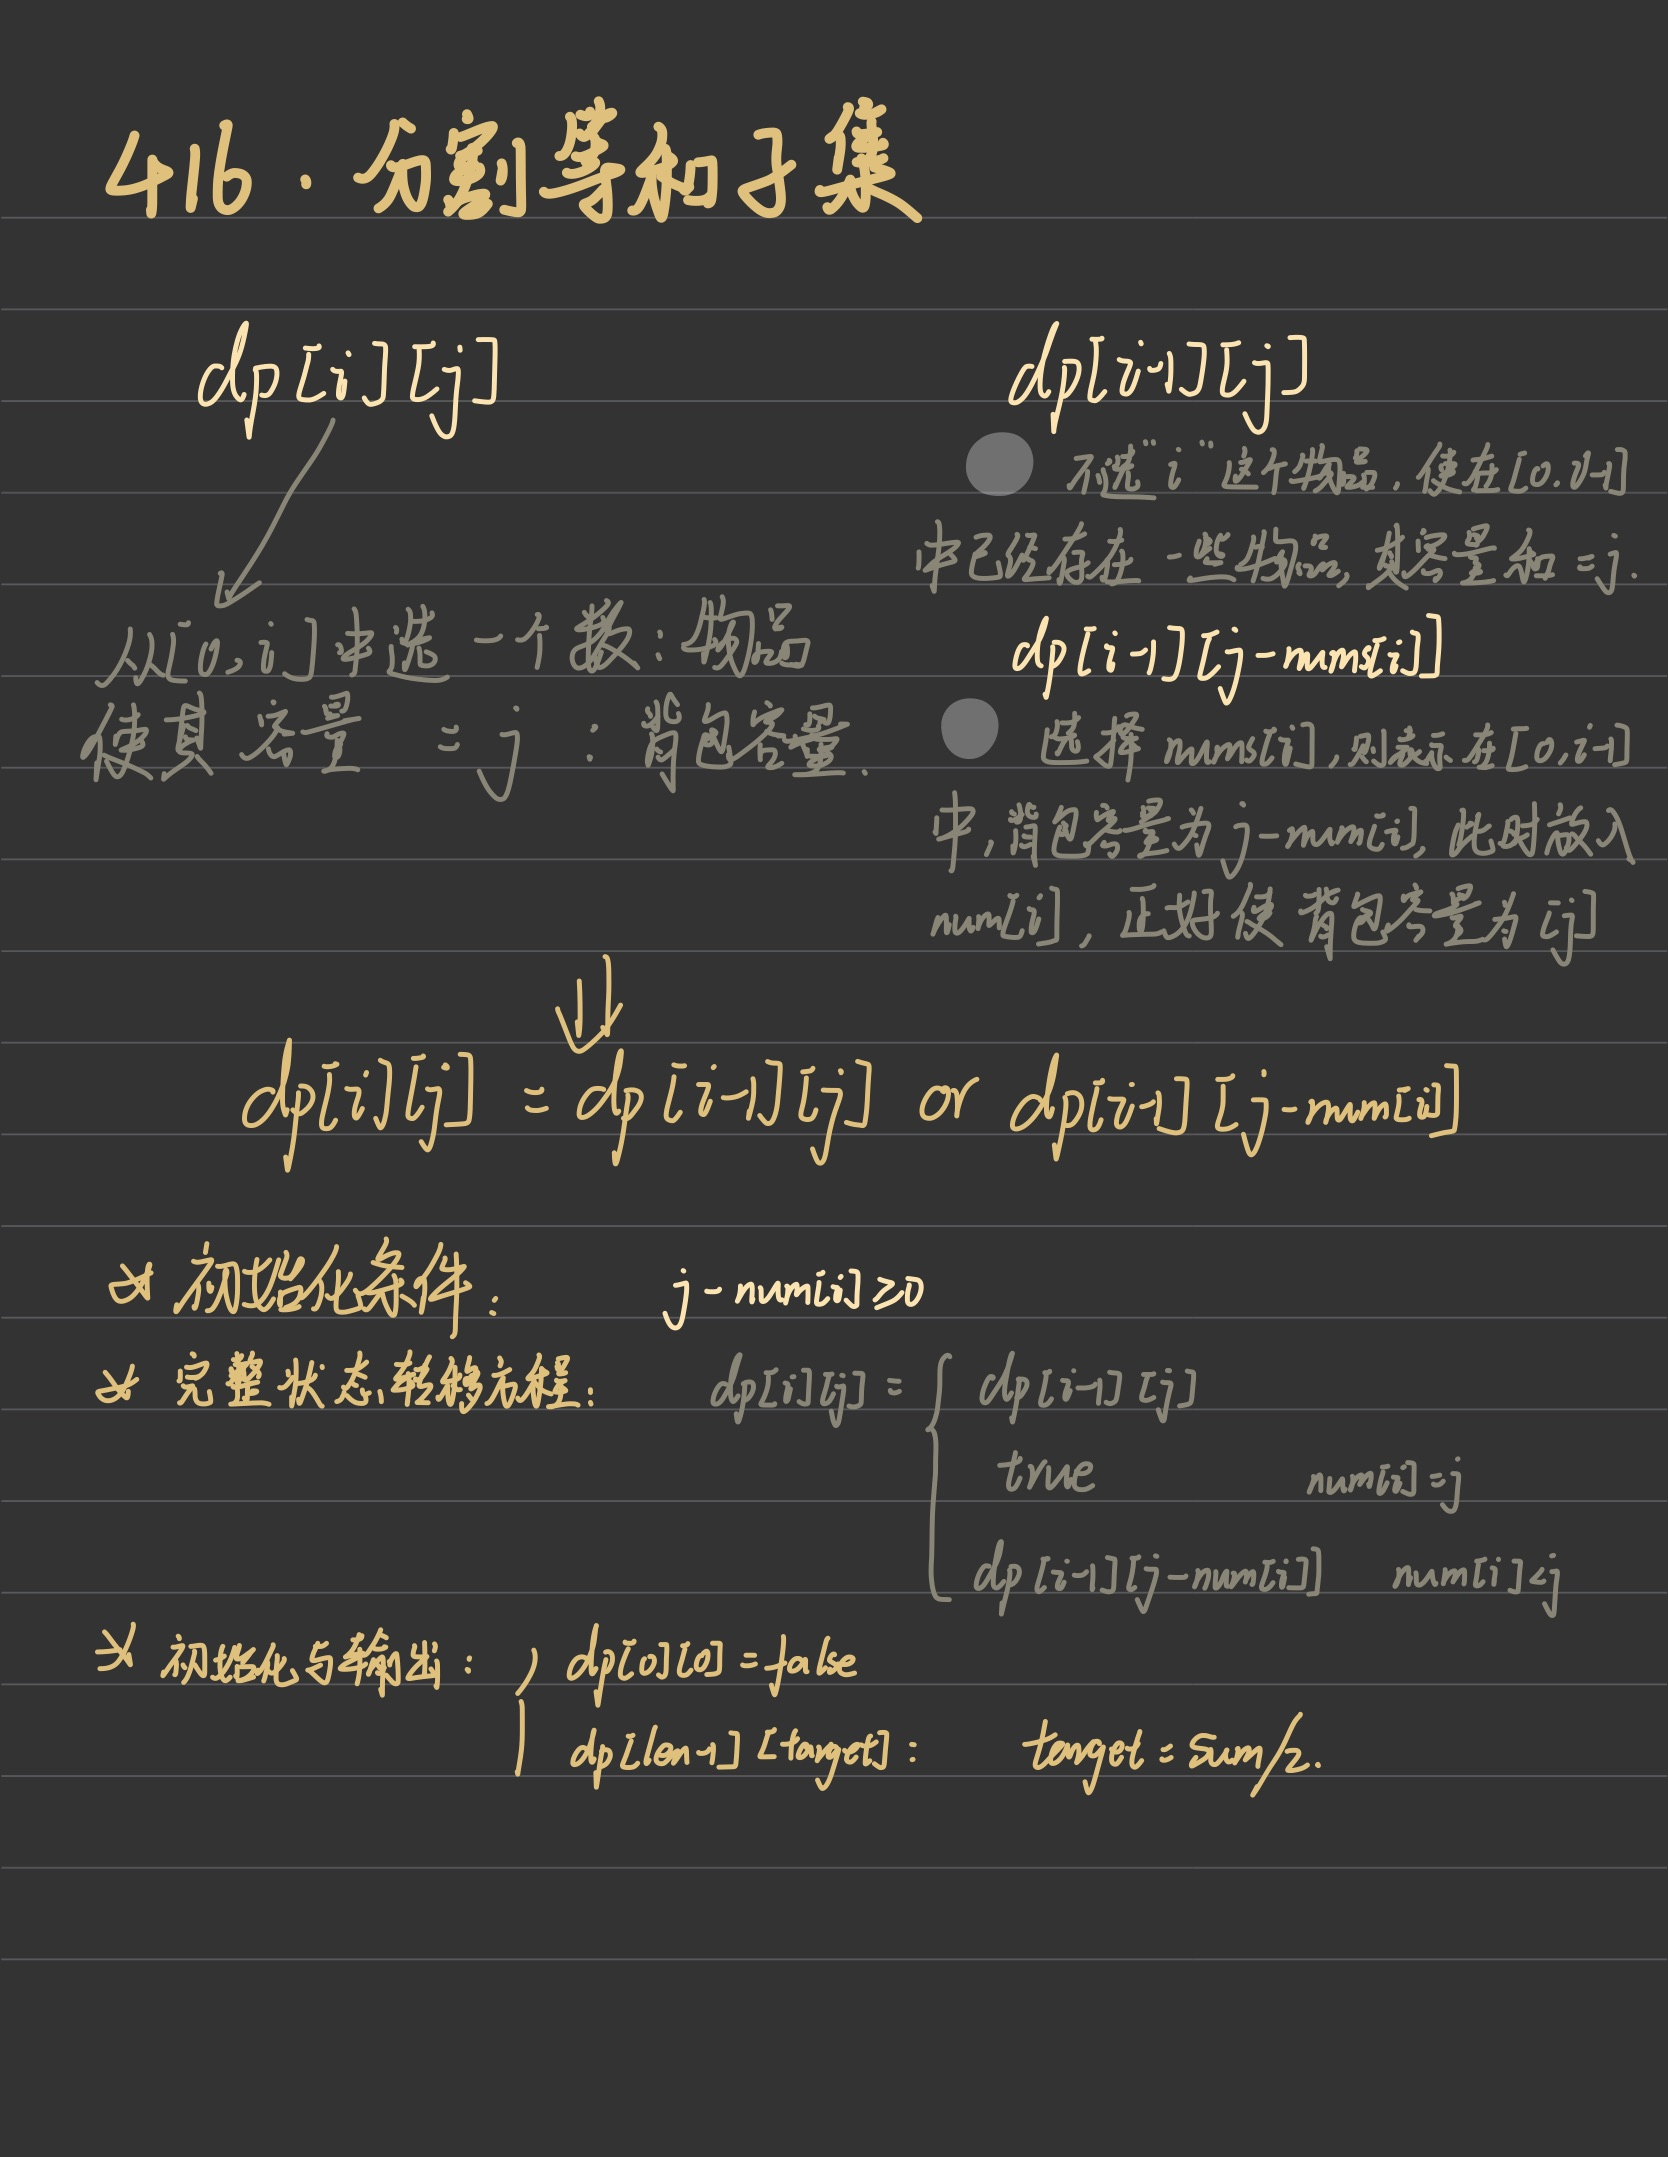 416.分割等和子集
dp[i][j]
从[0,i]中选一个数:物品
使其容量 = j : 背包容量.
dp[i-1][j]
不选"i"这个物品,使在[0,i-1]
中已经存在一些物品,其容量和=j.
dp[i-1][j-nums[i]]
选择nums[i],则表示在[0,i-1]
中,背包容量为j-num[i],此时放入
num[i],正好使背包容量为[j]
dp[i][j] = dp[i-1][j] or dp[i-1][j-num[i]]
初始化条件: j-num[i]≥0
完整状态转移方程: dp[i][j] = { dp[i-1][j]
true num[i]=j
dp[i-1][j-num[i]] num[i]<j
初始化与输出: dp[0][0]=false
dp[len-1][target]: target=sum/2.